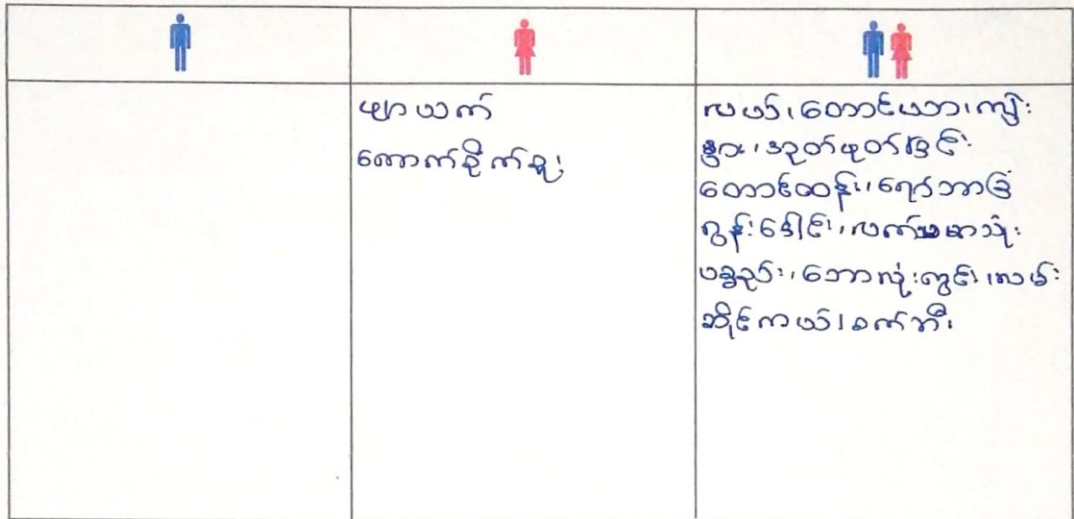 ဖျာယက်
ကောက်စိုက်ရှု
လယ်၊တောင်ယာ၊ကျွဲ
နွား၊အုတ်ဖုတ်ခြင်း
တောင်ထန်း၊ရော်ဘာခြံ
ကွန်းခေါင်း၊လက်သမား
ပန္နည်း၊ဘောလုံးကွင်း၊လမ်း
ဆိုင်ကယ်၊စက်ဘီး